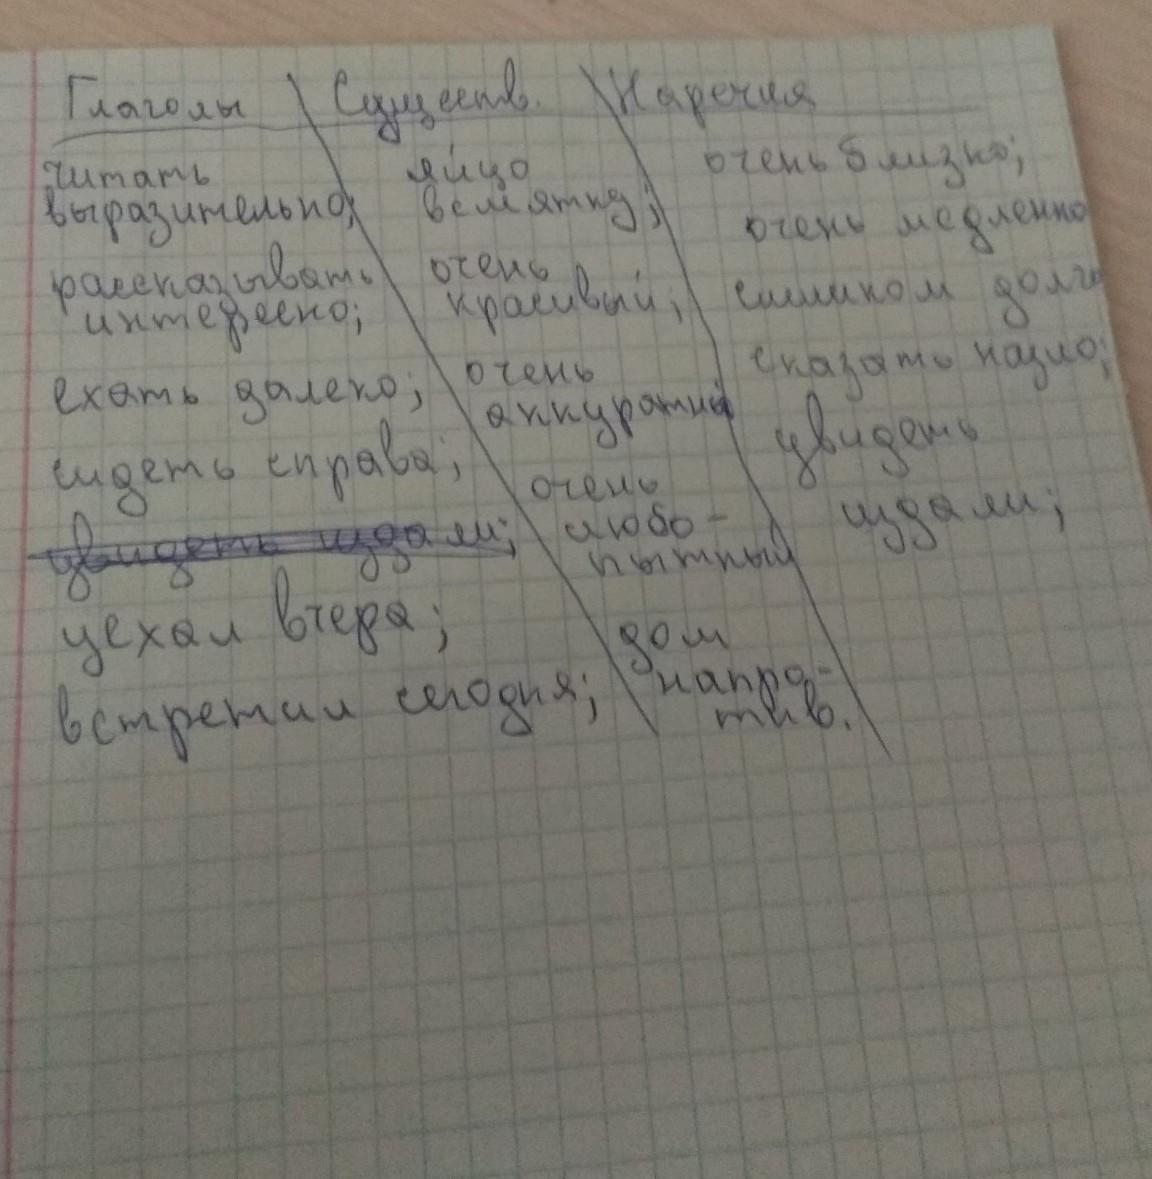 Глаголы Существ. Наречия
читать
выразительно;
рассказывать
интересно;
ехать далеко;
сидеть справа;
увидеть издали;
уехал вчера;
встретил сегодня;
яйцо
всмятку;
очень
красивый;
очень
аккуратный
очень
любо-
пытный
дом
напро-
тив.
очень близко;
очень медленно
слишком долго
сказать назло;
увидеть
издали;